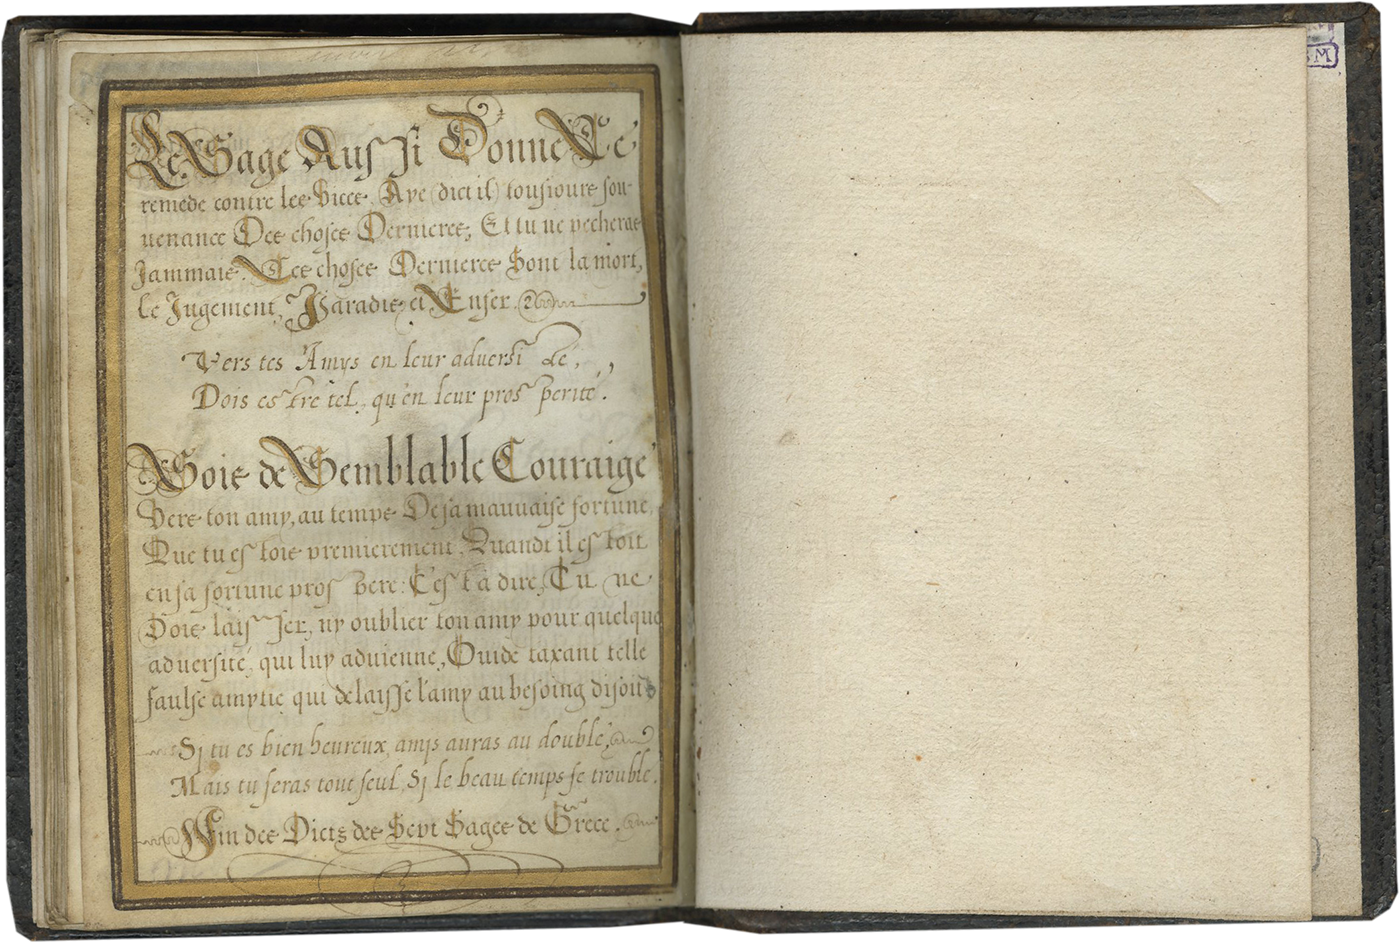 Le Sage Aussi Donne Ce
remede contre les Vices. Aye (dict il) tousiours sou-
uenance Des choses Dernieres, Et tu ne pecheras
Jammais. Ces choses Dernieres Sont la mort,
le Jugement, Paradis, et Enfer.
Vers tes Amys en leur aduersité,
Dois estre tel, qu'en leur prosperité.
Sois de Semblable Couraige
Vers ton amy, au temps De sa mauuaise fortune,
Que tu estois premierement, Quandt il estoit
en sa fortune prospere: C'est à dire, Tu ne
Dois laisser, ny oublier ton amy pour quelque
aduersité, qui luy aduienne, Ouide taxant telle
faulse amytie qui delaisse l'amy au besoing disoit
Si tu es bien heureux, amis auras au double,
Mais tu seras tout seul, Si le beau temps se trouble.
Fin des Dicts des Sept Sages de Grece.
M